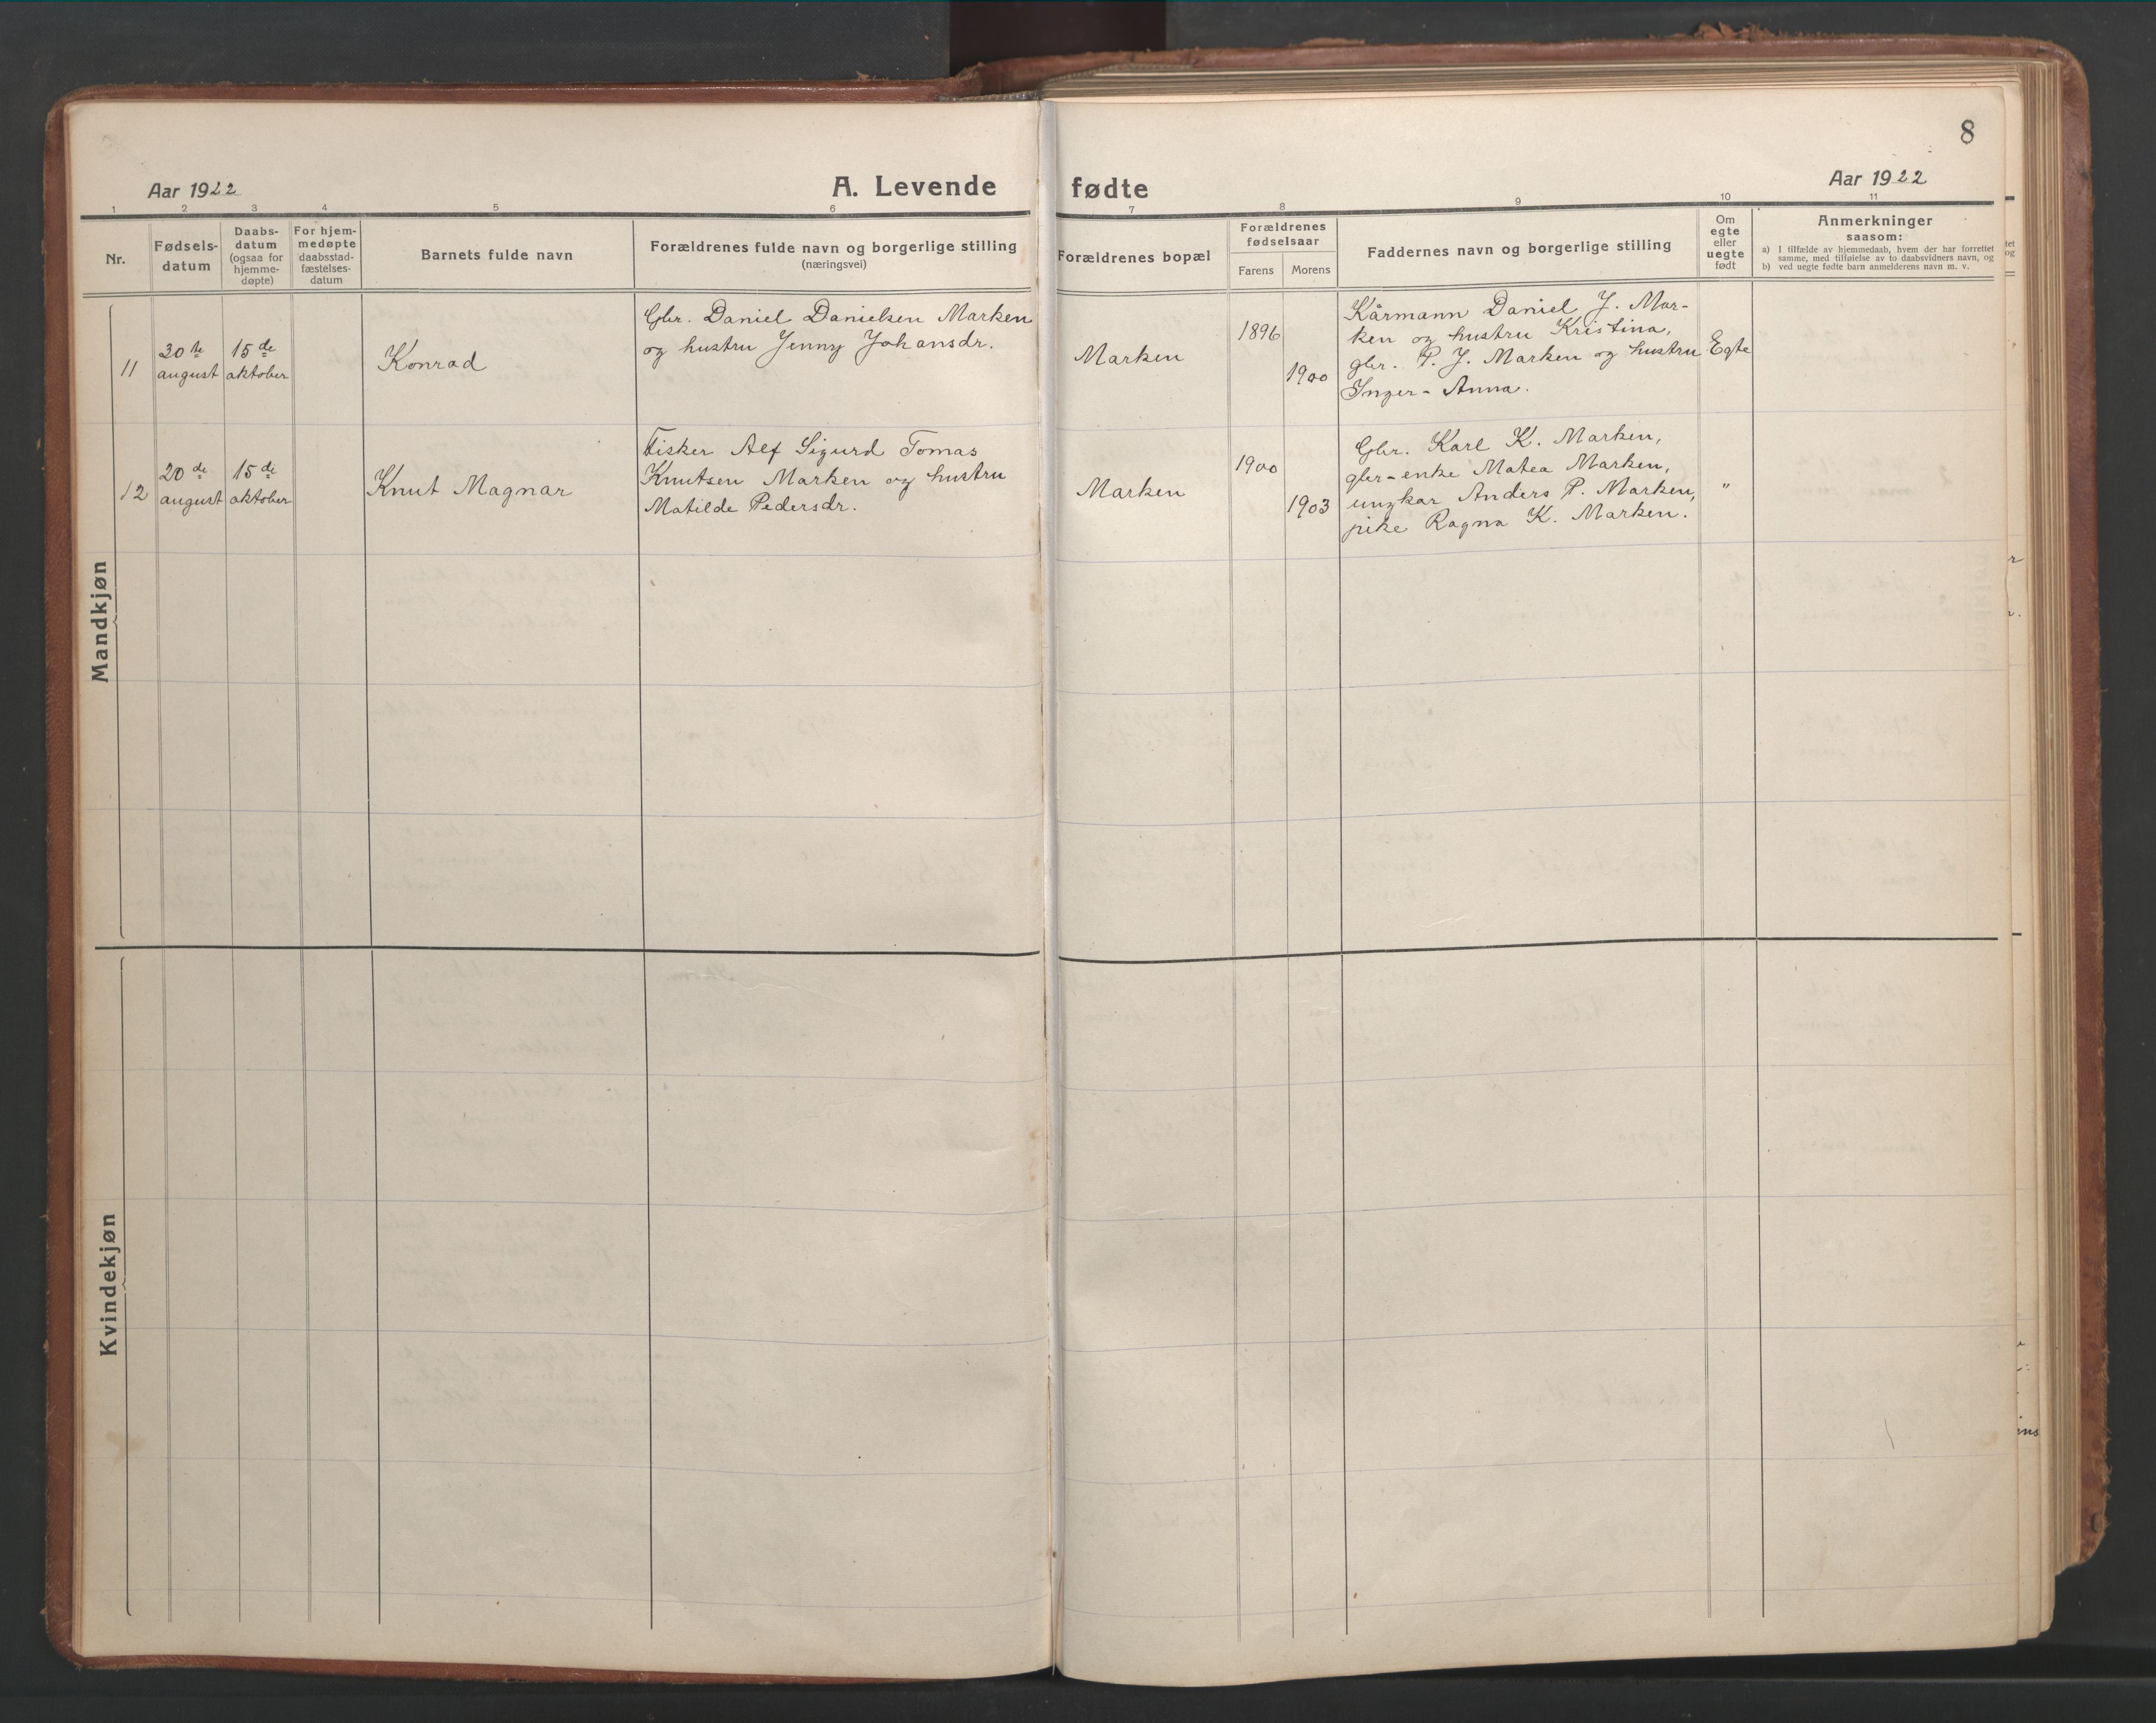 8
Aar 1922
A. Levende fødte
Aar 1922
1 2 3 4 5 6 7 8 9 10 11
Nr.
Fødsels-
datum
Daabs-
datum
(ogsaa for
hjemme-
døpte)
For hjem-
medøpte
daabsstad-
fæstelses-
datum
Barnets fulde navn
Forældrenes fulde navn og borgerlige stilling
(næringsvei)
Forældrenes bopæl
Forældrenes
fødselsaar
Farens Morens
Faddernes navn og borgerlige stilling
Om
egte
eller
uegte
født
Anmerkninger
saasom:
a) I tilfælde av hjemmedaab, hvem der har forrettet
samme, med tilføielse av to daabsvidners navn, og
b) ved uegte fødte barn anmelderens navn m. v.
Mandkjøn
11
30te
august
15de
oktober
Konrad
Gbr. Daniel Danielsen Marken
og hustru Jenny Johansdr.
Marken
1896
1900
Kårmann Daniel J. Mar-
ken og hustru Kristina,
gbr. P. J. Marken og hustru
Inger-Anna.
Egte
12
20de
august
15de
oktober
Knut Magnar
Fisker Alf Sigurd Tomas
Knutsen Marken og hustru
Matilde Pedersdr.
Marken
1900
1903
Gbr. Karl K. Marken,
gbr-enke Matea Marken,
ungkar Anders P. Marken,
pike Ragna K. Marken.
"
Kvindekjøn